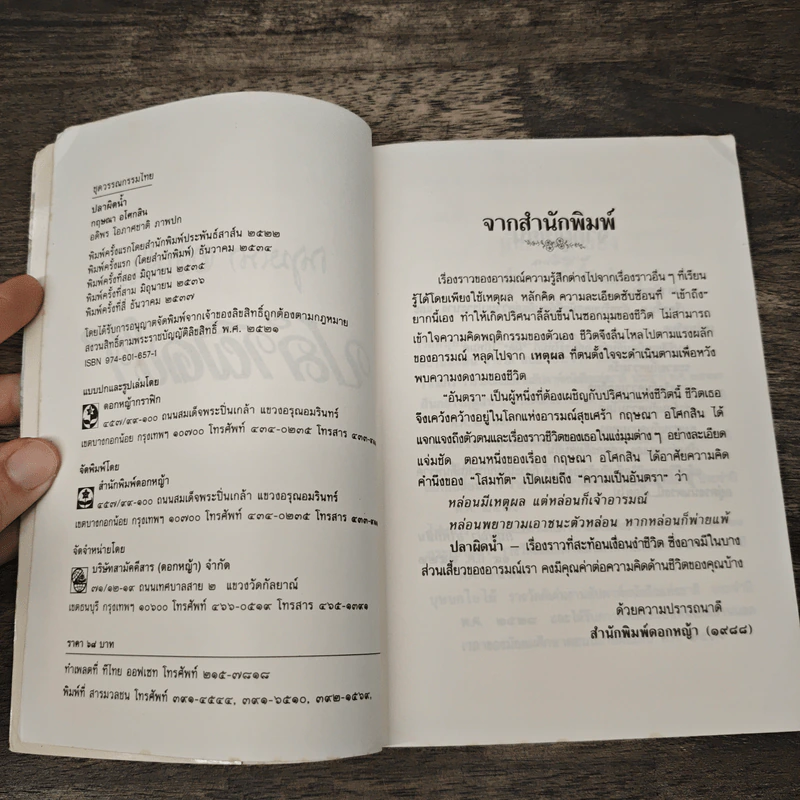 ชุดวรรณกรรมไทย
ปลาผิดน้ำ
กฤษณา อโศกสิน
อดิพร โอภาศชาติ ภาพปก
พิมพ์ครั้งแรกโดยสำนักพิมพ์ประพันธ์สาส์น ๒๕๒๒
พิมพ์ครั้งแรก (โดยสำนักพิมพ์) ธันวาคม ๒๕๓๔
พิมพ์ครั้งที่สอง มิถุนายน ๒๕๓๕
พิมพ์ครั้งที่สาม มิถุนายน ๒๕๓๖
พิมพ์ครั้งที่สี่ ธันวาคม ๒๕๓๗
โดยได้รับการอนุญาตจัดพิมพ์จากเจ้าของลิขสิทธิ์ถูกต้องตามกฎหมาย
สงวนสิทธิ์ตามพระราชบัญญัติลิขสิทธิ์ พ.ศ. ๒๕๒๑
ISBN 974-601-657-1
แบบปกและรูปเล่มโดย
ดอกหญ้ากราฟิก
๔๕๗/๙๙-๑๐๐ ถนนสมเด็จพระปิ่นเกล้า แขวงอรุณอมรินทร์
เขตบางกอกน้อย กรุงเทพฯ ๑๐๗๐๐ โทรศัพท์ ๔๓๔-๐๒๓๕ โทรสาร
จัดพิมพ์โดย
สำนักพิมพ์ดอกหญ้า
๔๕๗/๙๙-๑๐๐ ถนนสมเด็จพระปิ่นเกล้า แขวงอรุณอมรินทร์
เขตบางกอกน้อย กรุงเทพฯ ๑๐๗๐๐ โทรศัพท์ ๔๓๔-๐๒๓๕ โทรสาร
จัดจำหน่ายโดย
บริษัทสามัคคีสาร (ดอกหญ้า) จำกัด
๗๑/๑๒-๑๙ ถนนเทศบาลสาย ๒ แขวงวัดกัลยาณ์
เขตธนบุรี กรุงเทพฯ ๑๐๖๐๐ โทรศัพท์ ๔๖๖-๐๕๑๙ โทรสาร ๔๖๕-๑๓๙๑
ราคา ๖๙ บาท
ทำเพลตที่ ทีไทย ออฟเซท โทรศัพท์ ๒๑๕-๗๘๑๘
พิมพ์ที่ สารมวลชน โทรศัพท์ ๓๙๑-๔๕๔๔, ๓๙๑-๖๕๑๐, ๓๙๒-๑๕๖๙.
จากสำนักพิมพ์
เรื่องราวของอารมณ์ความรู้สึกต่างไปจากเรื่องราวอื่น ๆ ที่เรียน
รู้ได้โดยเพียงใช้เหตุผล หลักคิด ความละเอียดซับซ้อนที่ “เข้าถึง”
ยากนี้เอง ทำให้เกิดปริศนาลี้ลับขึ้นในซอกมุมของชีวิต ไม่สามารถ
เข้าใจความคิดพฤติกรรมของตัวเอง ชีวิตจึงลื่นไหลไปตามแรงผลัก
ของอารมณ์ หลุดไปจาก เหตุผล ที่ตนตั้งใจจะดำเนินตามเพื่อหวัง
พบความงดงามของชีวิต
“อันตรา” เป็นผู้หนึ่งที่ต้องเผชิญกับปริศนาแห่งชีวิตนี้ ชีวิตเธอ
จึงเคว้งคว้างอยู่ในโลกแห่งอารมณ์สุขเศร้า กฤษณา อโศกสิน ได้
แจกแจงถึงตัวตนและเรื่องราวชีวิตของเธอในแง่มุมต่าง ๆ อย่างละเอียด
แจ่มชัด ตอนหนึ่งของเรื่อง กฤษณา อโศกสิน ได้อาศัยความคิด
คำนึงของ “โสมทัต” เปิดเผยถึง “ความเป็นอันตรา” ว่า
หล่อนมีเหตุผล แต่หล่อนก็เจ้าอารมณ์
หล่อนพยายามเอาชนะตัวหล่อน หากหล่อนก็พ่ายแพ้
ปลาผิดน้ำ – เรื่องราวที่สะท้อนเงื่อนงำชีวิต ซึ่งอาจมีในบาง
ส่วนเสี้ยวของอารมณ์เรา คงมีคุณค่าต่อความคิดด้านชีวิตของคุณบ้าง
ด้วยความปรารถนาดี
สำนักพิมพ์ดอกหญ้า (๑๙๘๘)